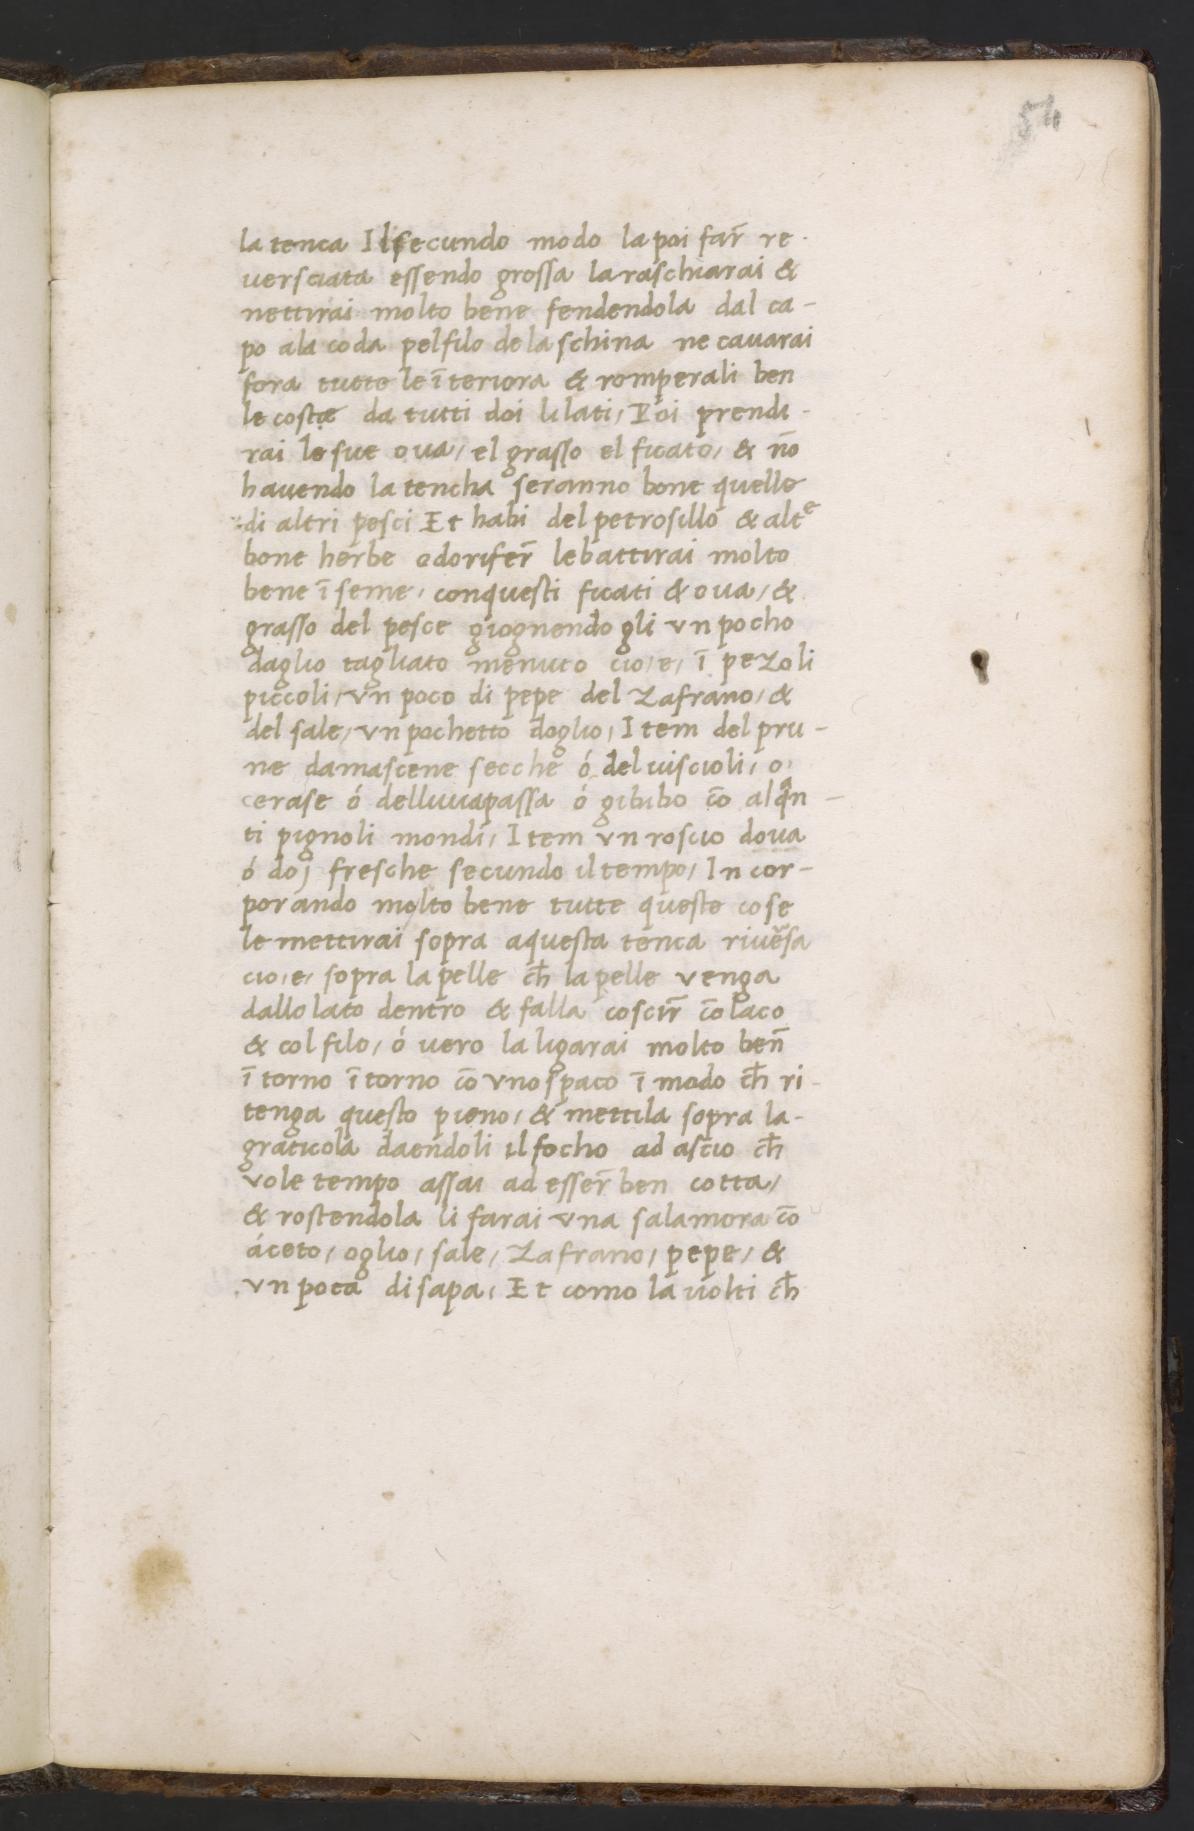 54
la tenca Il secundo modo la poi far̄ re-
versciata essendo grossa la raschiarai &
nettirai molto bene fendendola dal ca-
po ala coda pel filo de la schina ne cavarai
fora tutte le īteriora & romperali ben
le coste da tutti doi li lati, Poi prendi-
rai le sue ova, el grasso el ficato, & nō
havendo la tencha seranno bone quelle
di altri pesci Et habi del petrosillo & altᵉ
bone herbe odorifer̄ le battirai molto
bene īseme, con questi ficati & ova, &
grasso del pesce giognendo gli vn pocho
daglio tagliato menuto cio,e, ī pezoli
piccoli, vn poco di pepe del zafrano, &
del sale, vn pochetto doglio, Item del pru-
ne damascene secche ó del viscioli, o,
cerase ó dell uva passa ó gibibo cō alqᵃn-
ti pignoli mondi, Item vn roscio dova
ó doj fresche secundo il tempo, Incor-
porando molto bene tutte queste cose
le mettirai sopra aquesta tenca rivēsa
cio,e, sopra la pelle ch̄ la pelle venga
dallo lato dentro & falla coscir̄ cō laco
& col filo, ó vero la ligarai molto ben̄
ī torno ī torno cō vno spaco ī modo ch̄ ri-
tenga questo pieno, & mettila sopra la-
graticola daendoli il focho ad ascio ch̄
vole tempo assai ad esser̄ ben cotta,
& rostendola li farai vna salamora cō
áceto, oglio, sale, zafrano, pepe, &
vn poca di sapa, Et como la volti ch̄